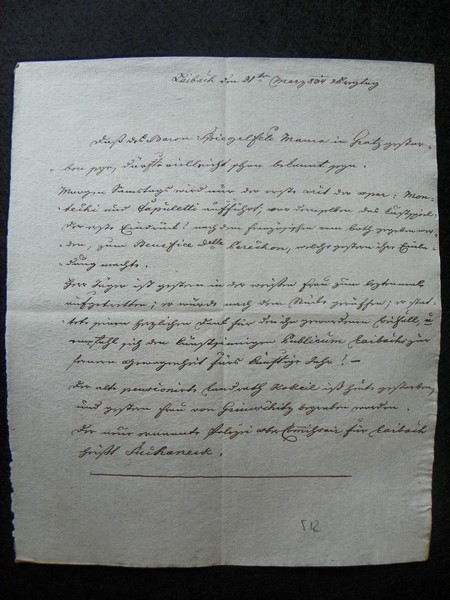 Laibach den 21ten März 834 Freytag
Daß des Baron Spiegelfeld Mama in Gratz gestor-
ben seye, dürfte vielleicht schon bekannt seyn.
Morgen Samstags wird nur der erste Act der Oper: Mon-
techi und Capuletti aufführt, vor demselben das Lustspiel:
der erste Eindruck! nach dem französischen von
den, zum Benefice der welche gestern ihre Einla-
dung machte.
Herr Jäger ist gestern in der weissen Frau zum letztenmal
aufgetretten; er wurde nach dem Stücke gerufen; er stat-
tet seinen herzlichen Dank für den ihm gewordenen Beifall, u
empfahl sich dem kunstsinnigen Publicum Laibachs zur
fernern Gewogenheit fürs künftige Jahr! –
Der alte pensionirte Landrath ist heute gestorben,
und gestern Frau von begraben worden.
Der neue ernannte Polizei Ober Commissair für Laibach
heißt Suchaneck.
512